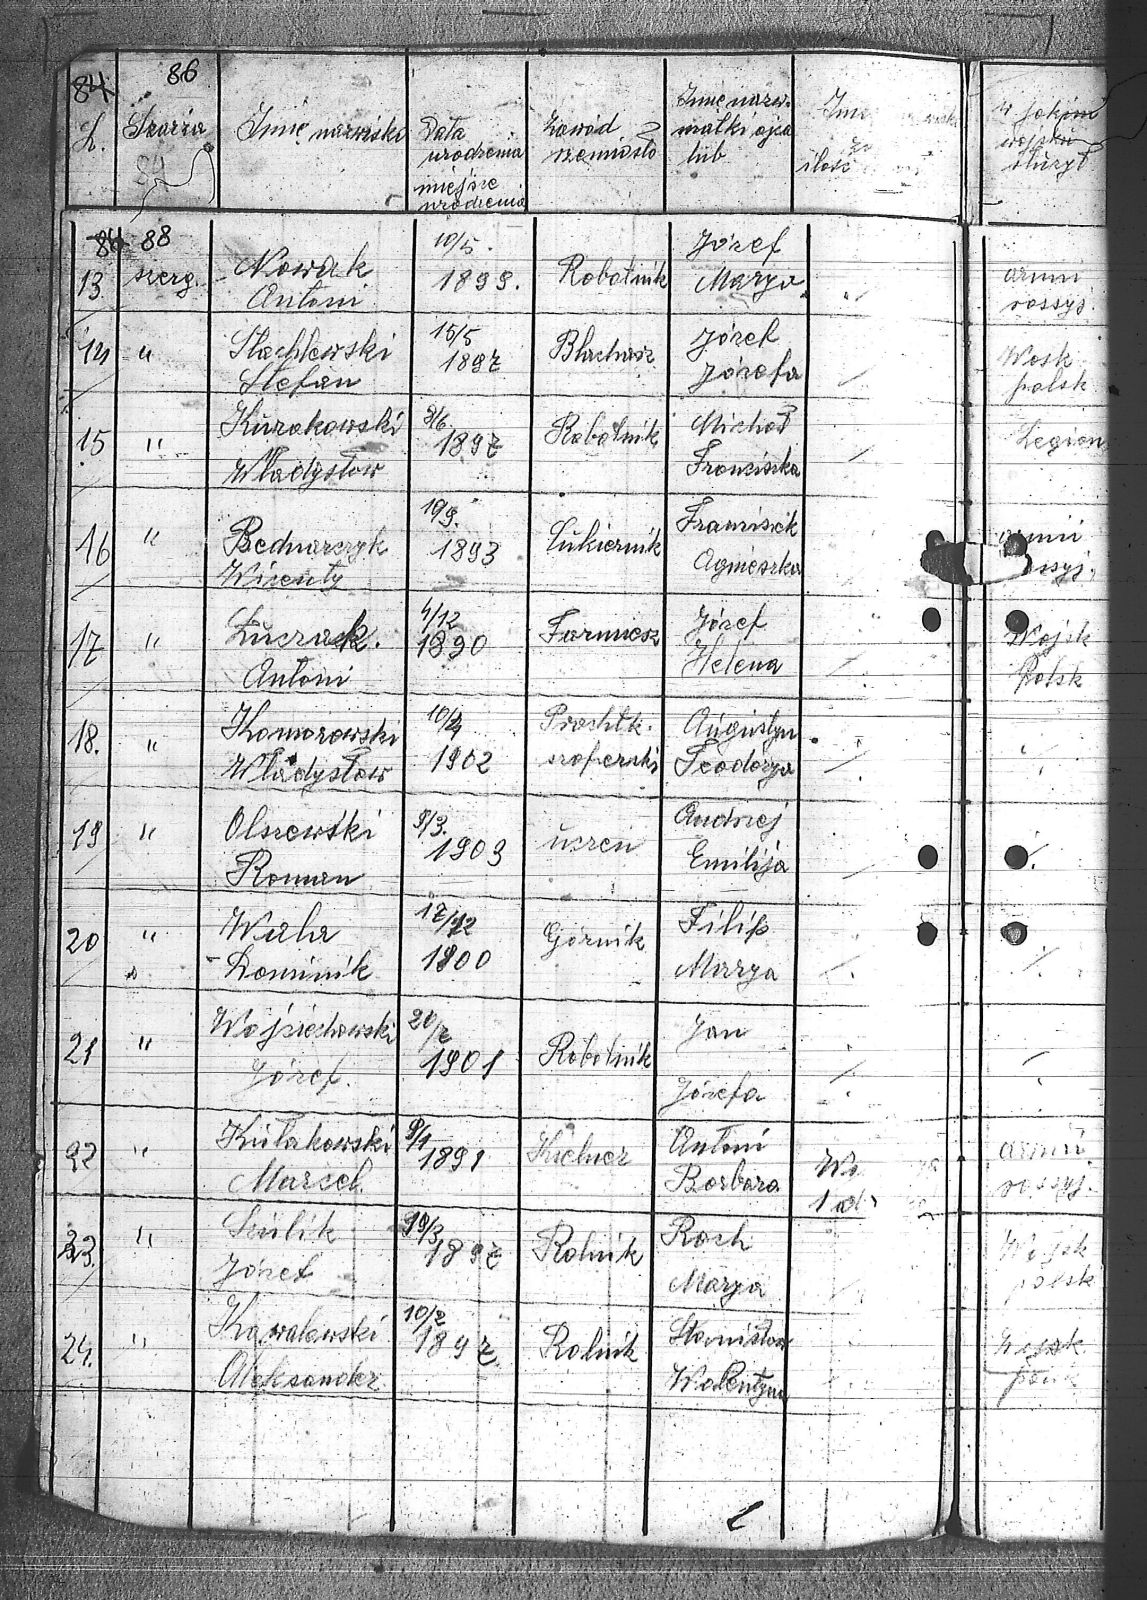 84 86
L. Szarża Imię nazwisko Data urodzenia miejsce urodzenia Zawód rzemiosło Imię nazw. matki ojca lub Imi ilość W jakim wojsku służył
84
84 88
13. szerg. Nowak Antoni 10/5. 1899. Robotnik Józef Marya armii rossyj.
14 " Stachlewski Stefan 15/5 1897 Blacharz Józef Józefa Wosk polsk
15 " Kurakowski Władysław 2/6 1897 Robotnik Michał Franciszka Legion
16 " Bednarczyk Wicenty 19/9. 1893 Cukiernik Franciszek Agnieszka armii
17 " Łuczack. Antoni 4/12 1890 Farmiesz Józef Helena Wojsk Polsk
18. " Komorowski Władysław 10/4 1902 Prachtk. szoferski Augustyn Teodozya "
19 " Olszewski Roman 9/3. 1903 uczeń Andrzej Emilija
20 " Wala Dominik 17/12 1900 Górnik Filip Marya
21 " Wojciechowski Józef. 20/2 1901 Robotnik Jan Józefa
22 " Kułakowski Marcel. 9/1 1891 Kielner Antoni Barbara armii rossyj.
23. " Szulik Józef 19/3 1897 Rolnik Roch Marya Wojsk polsk
24. " Kowalewski Aleksander 10/2 1897. Rolnik Stanisław Walentyna Wojsk